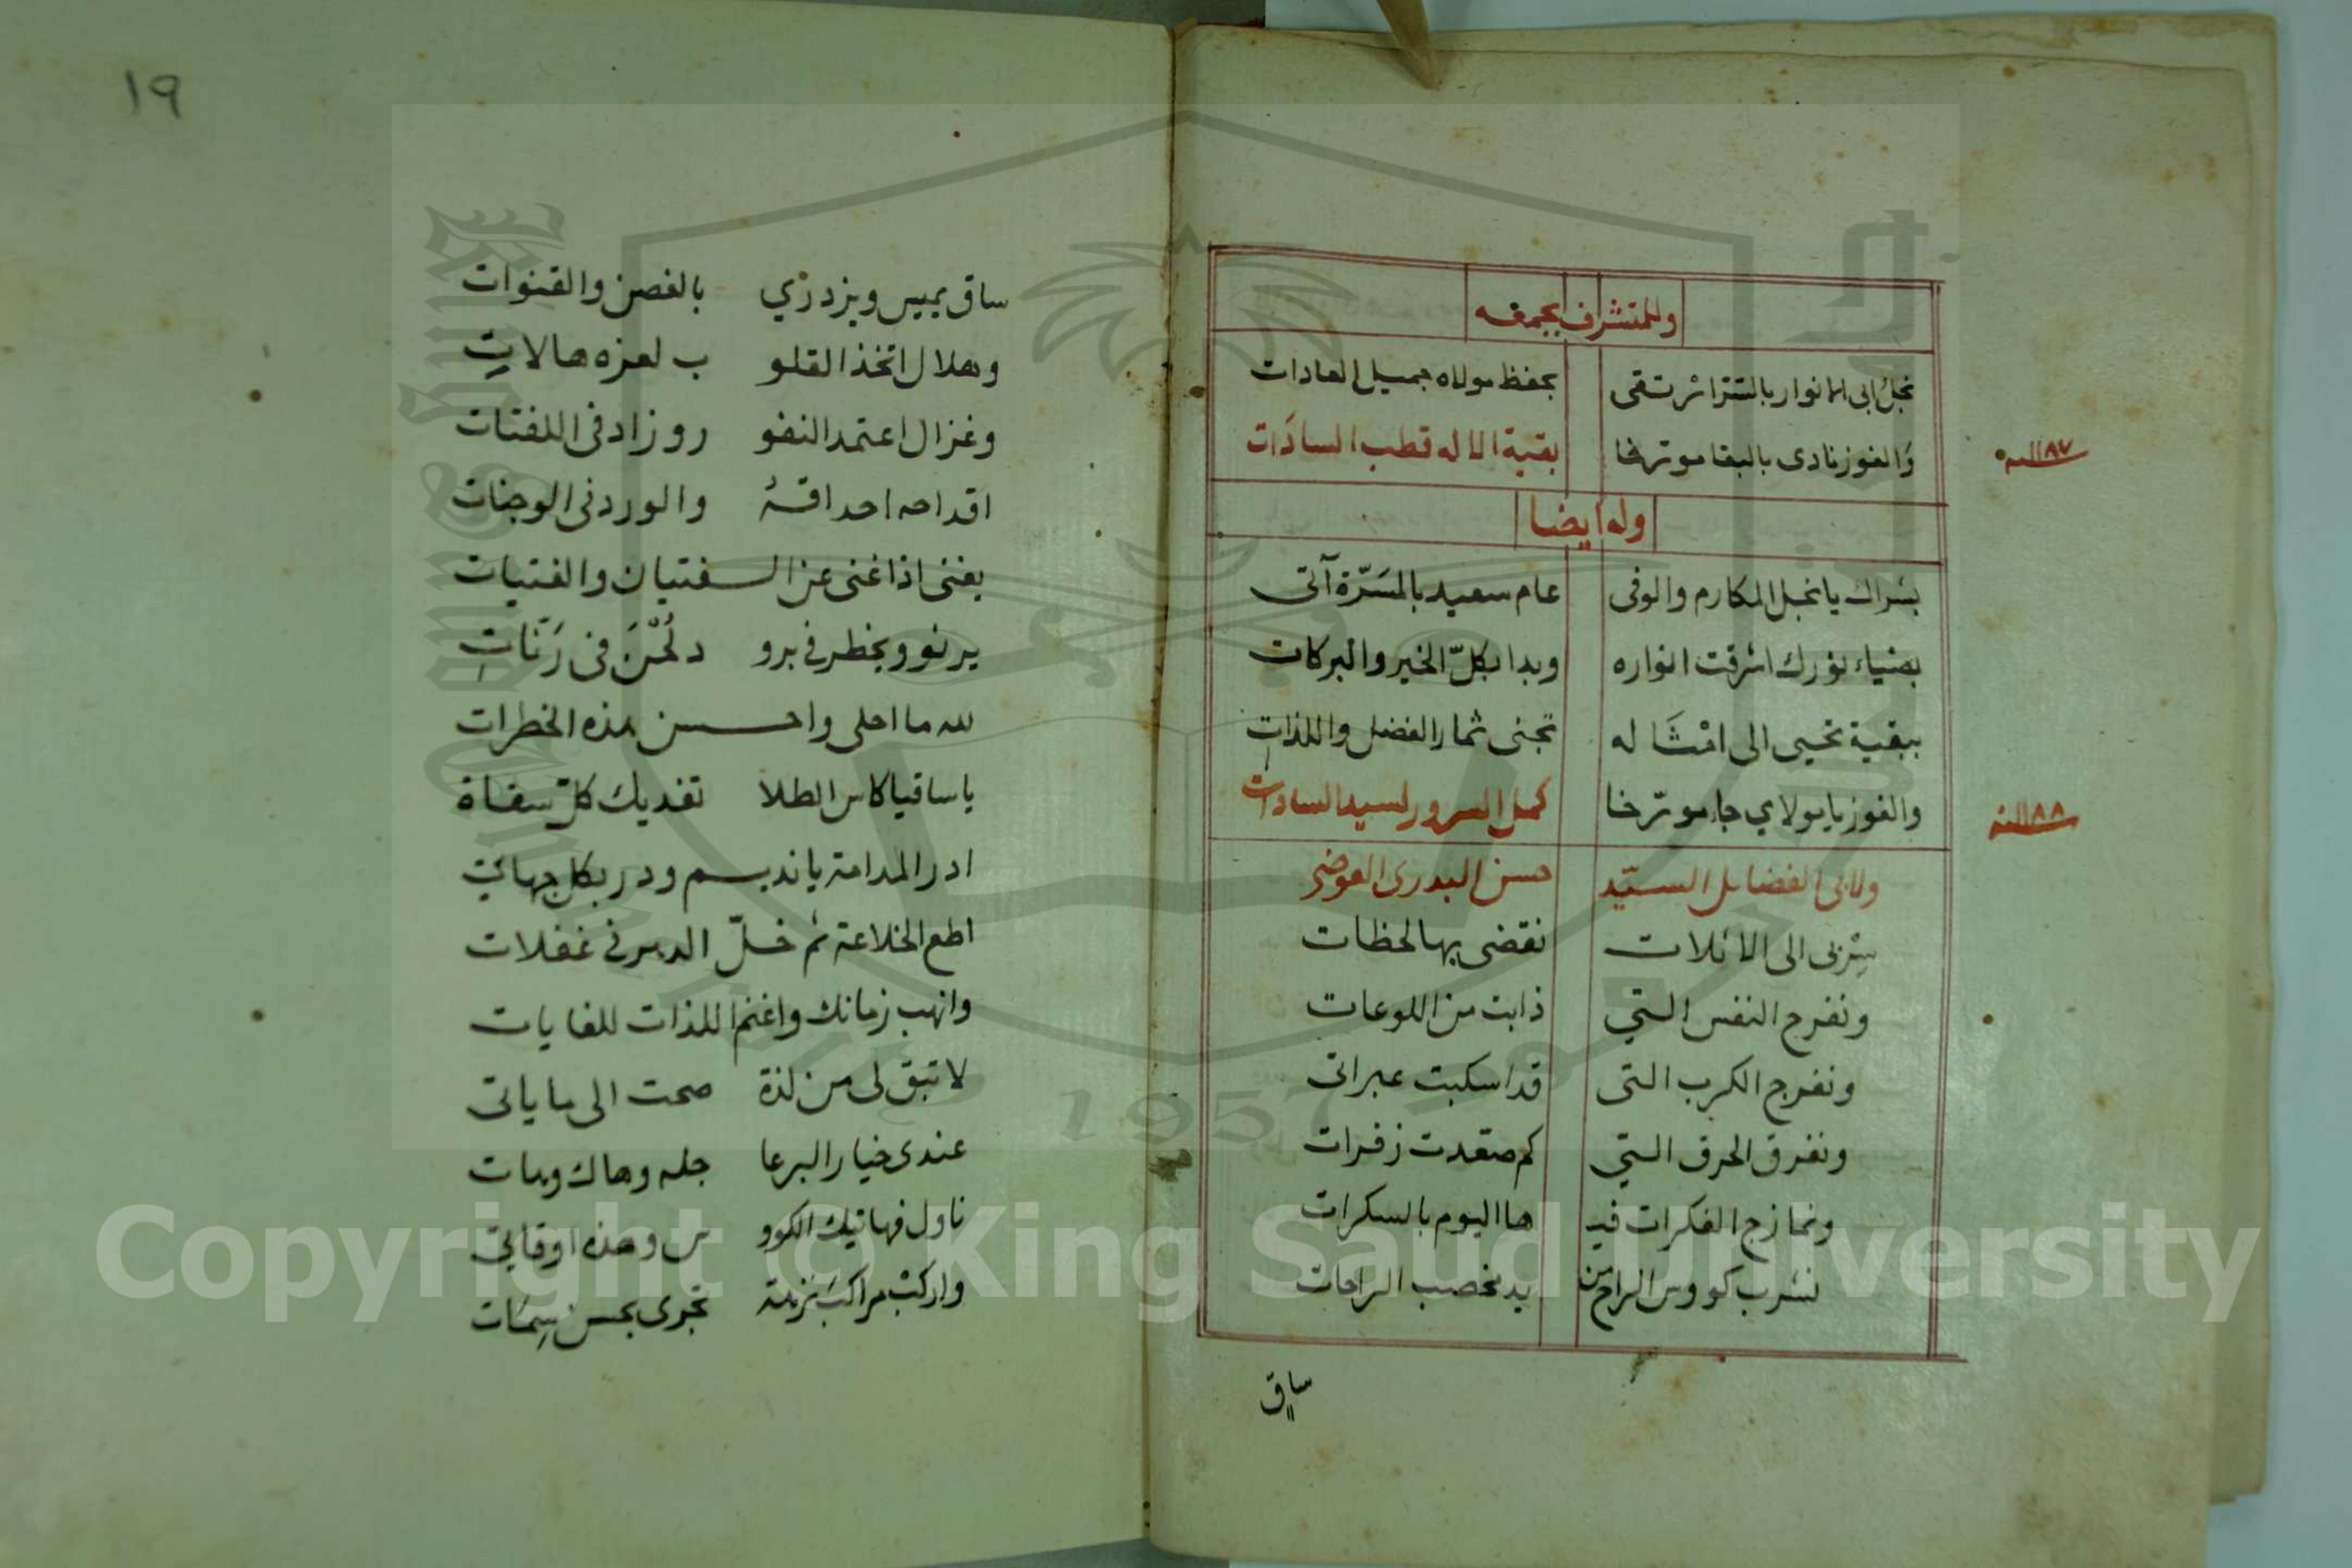 وللمتشرف بجمعه
نجل ابى الانوار بالتتر ائر تقى بحفظ مولاه جميل العادات
والفوز نادى بالبقا مورخا بقية الاله قطب السادات
١١٨٧ سنه
وله ايضا
بشراك يا نجل المكارم والوفى عام سعيد بالمسَرّة آتى
بضياء نورك اشرقت انواره وبدا بكلّ الخير والبركات
ببقية تحيى الى امثَا له تجنى ثمار الفضل واللذات
والفوز يا مولاي جا مورّخا كمل السرور لسيد السادات
١١٨٨ سنه
ولابى الفضايل السيّد حسن البدرى العوضى
سِرْبى الى الاثلات نقضى بها لحظات
ونفرج النفس التي ذابت من اللوعات
ونفرج الكرب التى قد اسكبت عبراتى
ونفرق الحرق التي كم صعدت زفرات
ونمازج الفكرات فيـ ها اليوم بالسكرات
نشرب كووس الراح من يد مخصب الراحات
ساق
١٩
ساق يميس ويزدرَي بالغصن والقنوات
وهلال اتخذ القلو ب لعزه هالات
وغزال اعتمد النفو ر وزاد فى اللفتات
اقداحه احداقهُ والورد فى الوجنات
يغنى اذا غنى عن السفتيان والفتيات
يرنو ويخطر فى برو د لُحْنَ فى رَنّات
لله ما احلى واحسن هذه الخطرات
يا ساقيا كاس الطلا تفديك كلّ سقاة
ادر المدامة يا نديــم ودر بكل جهاتى
اطع الخلاعة ثم خلّ الدهر فى غفلات
وانهب زمانك واغنم اللذات للغايات
لا تبق لى من لذة صحت الى ما ياتى
عندى خيار البر عا جله وهاك وهات
ناول فهاتيك الكوو س وهذه اوقاتى
واركبْ مراكبَ نزهة تجرى بحسن سِمَات
Copyright © King Saud University
1957